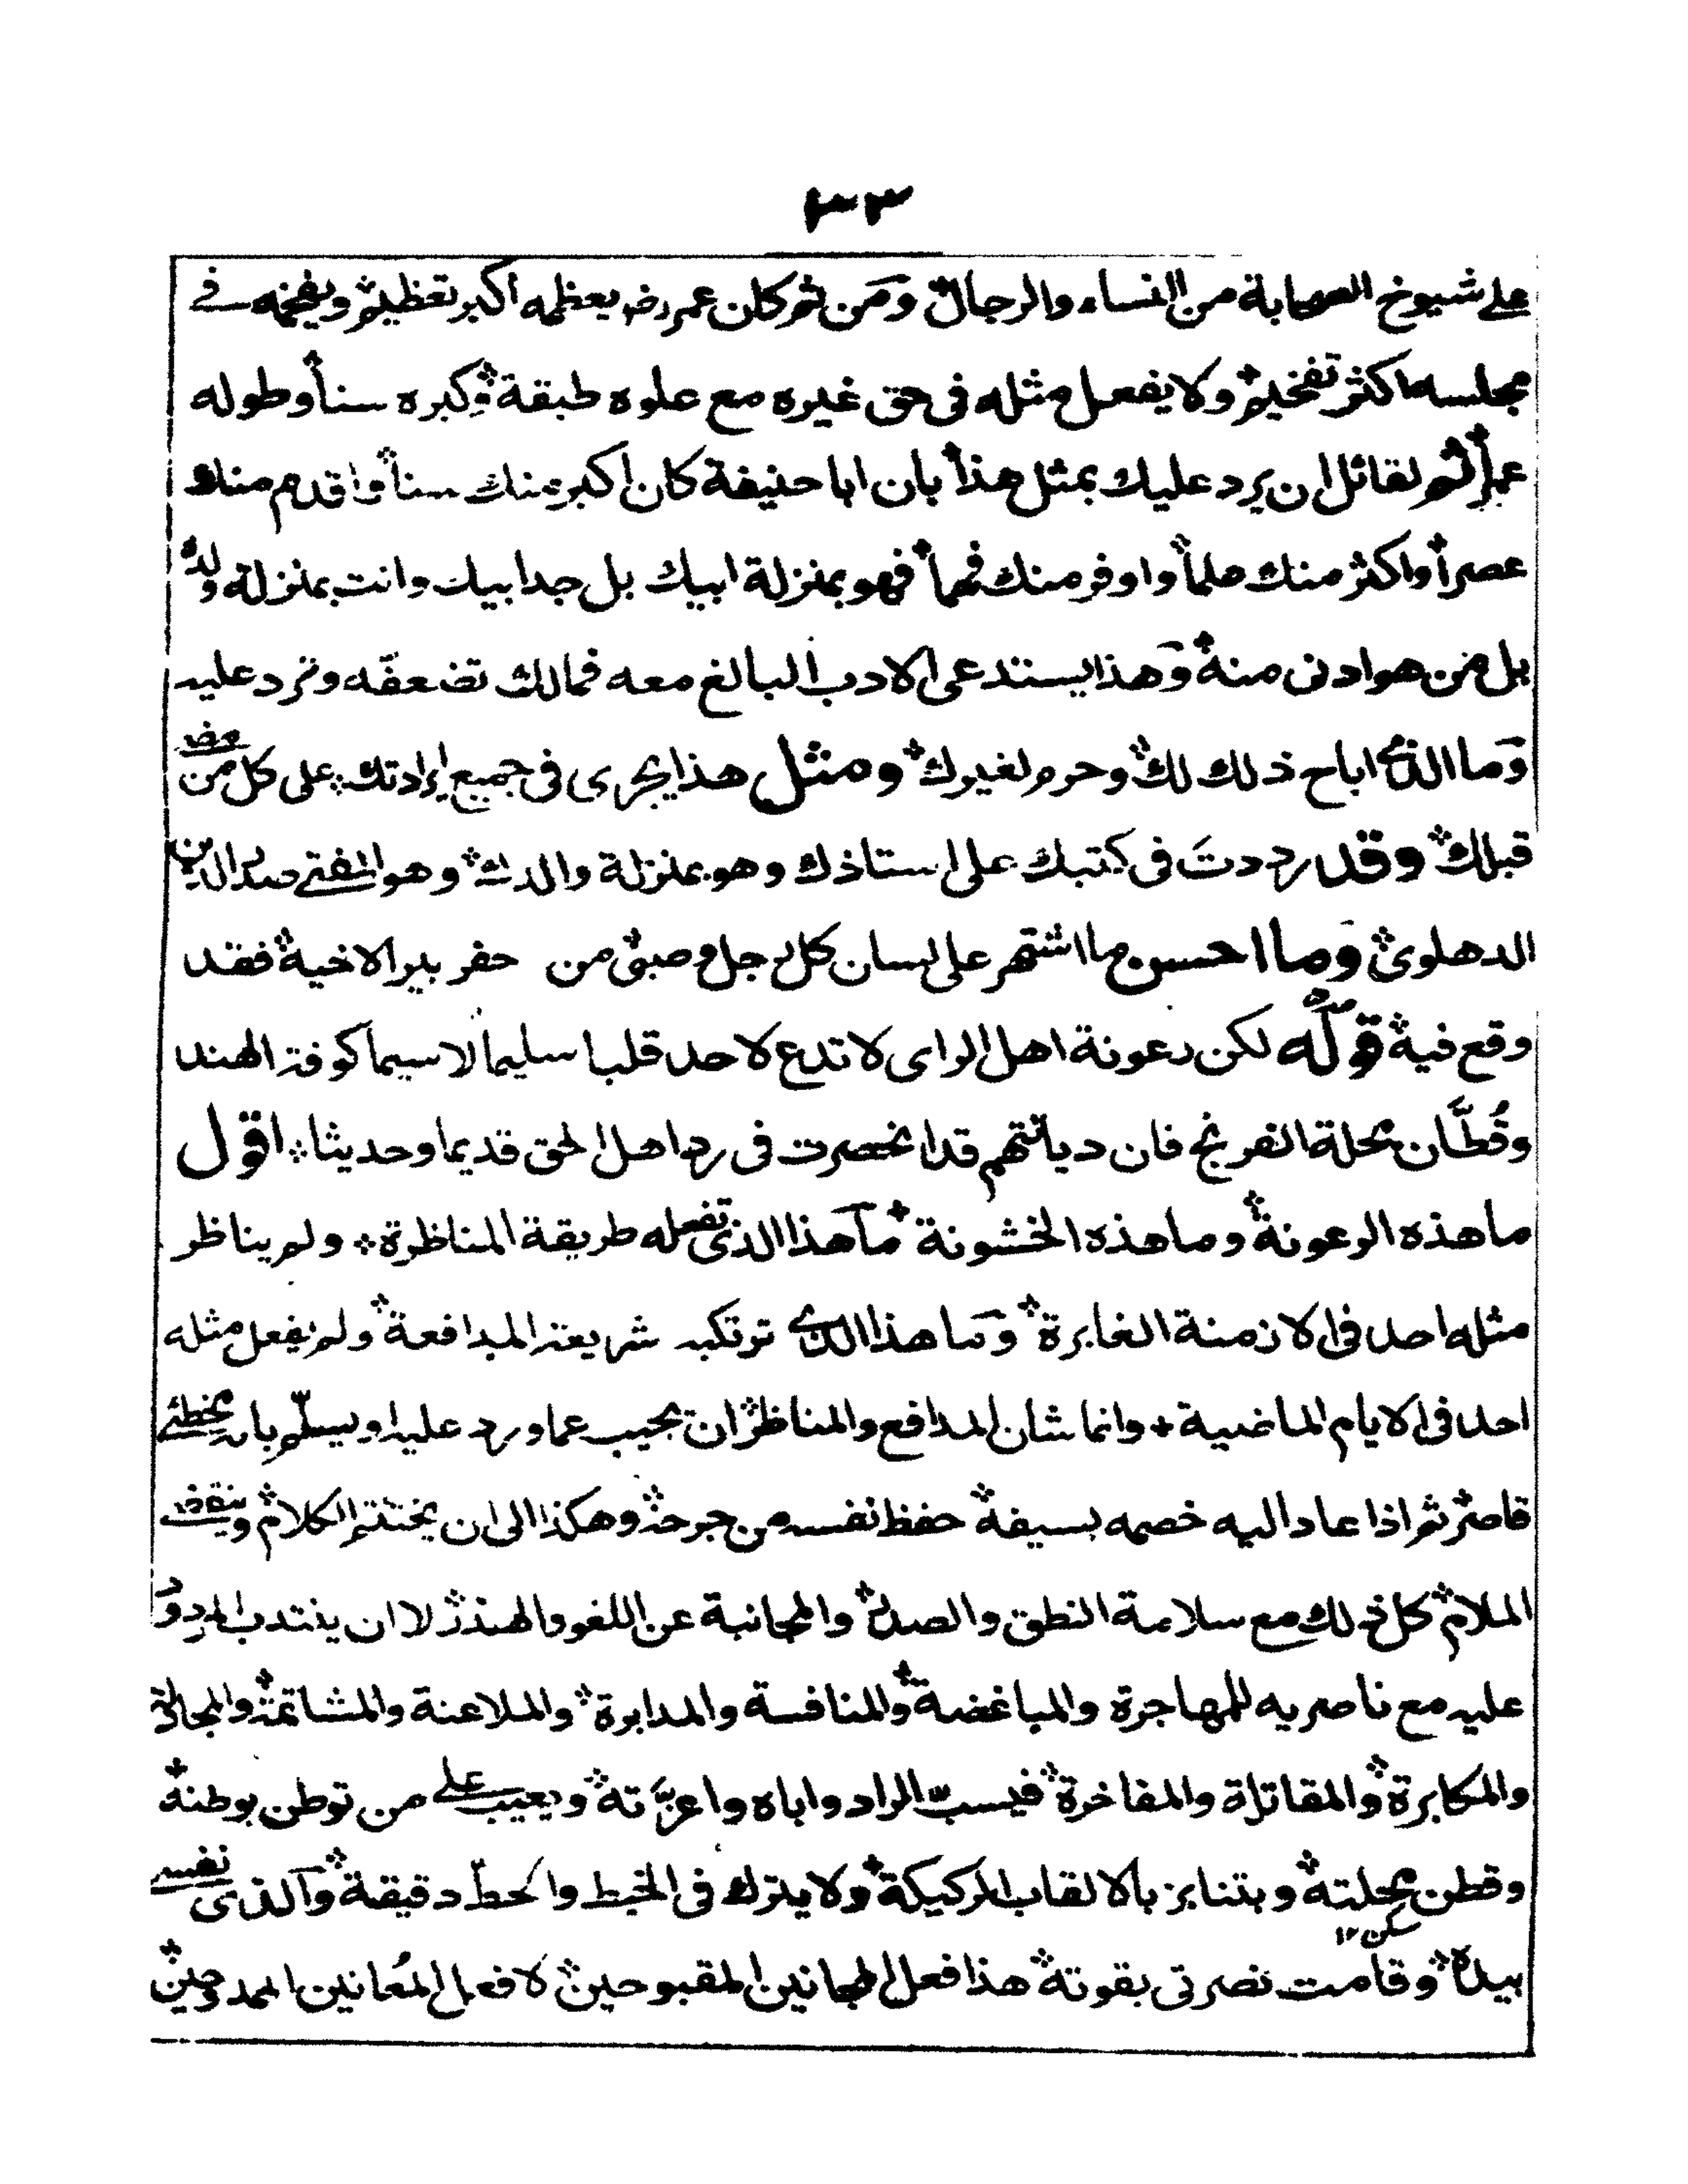 ٣٣
على شيوخ الصحابة من النساء والرجال ومن ثم كان عمر رض يعظمه اكبر تعظيم ويفخمه في
مجلسه اكثر تفخيم ولا يفعل مثله فى حق غيره مع علوه طبقة وكبره سنا وطوله
عمرا ثم لقائل ان يرد عليك بمثل هذا بان ابا حنيفة كان اكبر منك سنا واقدم منك
عصرا واكثر منك علما واوفر منك فهما فهو بمنزلة ابيك بل جد ابيك وانت بمنزلة ولده
بل من هو ادنى منه وهذا يستدعى الادب البالغ معه فمالك تضعفه وترد عليه
وما الذي اباح ذلك لك وحرم لغيرك ومثل هذا يجرى فى جميع ايراداتك على كل من مضى
قبلك وقد رددتَ فى كتبك على استاذك وهو بمنزلة والدك وهو المفتى صدر الدين
الدهلوى وما احسن ما اشتهر على لسان كل رجل وصبى من حفر بير الاخيه فقد
وقع فيه قوله لكن رعونة اهل الراى لا تدع لاحد قلبا سليما لا سيما كوفة الهند
وقُطَّان محلة الفرنج فان ديانتهم قد انحصرت فى رد اهل الحق قديما وحديثا اقول
ما هذه الرعونة وما هذه الخشونة ما هذا الذى تفعله طريقة المناظرة ولم يناظر
مثله احد فى الازمنة الغابرة وما هذا الذي ترتكبه شريعة المدافعة ولم يفعل مثله
احد فى الايام الماضية + وانما شان المدافع والمناظر ان يجيب عما ورد عليه او يسلّم بانه مخطئ
قاصر ثم اذا عاد اليه خصمه بسيفه حفظ نفسه من جرحه وهكذا الى ان يختتم الكلام وينقضى
الملام كل ذلك مع سلامة النطق والصدر والمجانبة عن اللغو والهذر لا ان ينتدب المردود
عليه مع ناصريه للمهاجرة والمباغضة والمنافسة والمدابرة والملاعنة والمشاتمة والمجادلة
والمكابرة والمقاتلة والمفاخرة فيسبّ الراد واباه واعزَّته ويعيب على من توطن بوطنه
وقطن بمحلته ويتنابز بالالقاب الركيكة ولا يترك فى الخبط والحطّ دقيقة والذى نفسى
سكن ١٢
بيده وقامت نصرتى بقوته هذا فعل المجانين المقبوحين لا فعل المُعانين الممدوحين